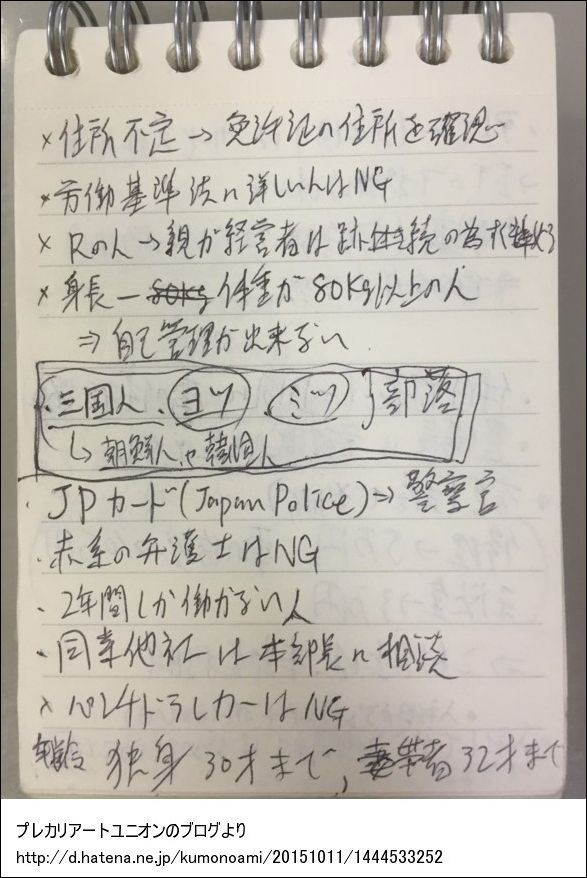 × 住所不定 → 免許証の住所を確認
× 労働基準法に詳しい人はNG
× Rの人 → 親が経営者は跡継続の為
× 身長ー 体重が80Kg以上の人
⇒ 自己管理が出来ない
・三国人、ヨツ、ミツ 部落
↳ 朝鮮人や韓国人
・JPカード(Japan Police) → 警察官
・赤系の弁護士はNG
・2年間しか働かない人
・同業他社は本部長に相談
× ペンチドラレカーはNG
年齢 独身30才まで、妻帯者32才まで
プレカリアートユニオンのブログより
http://d.hatena.ne.jp/kumonoami/20151011/1444533252